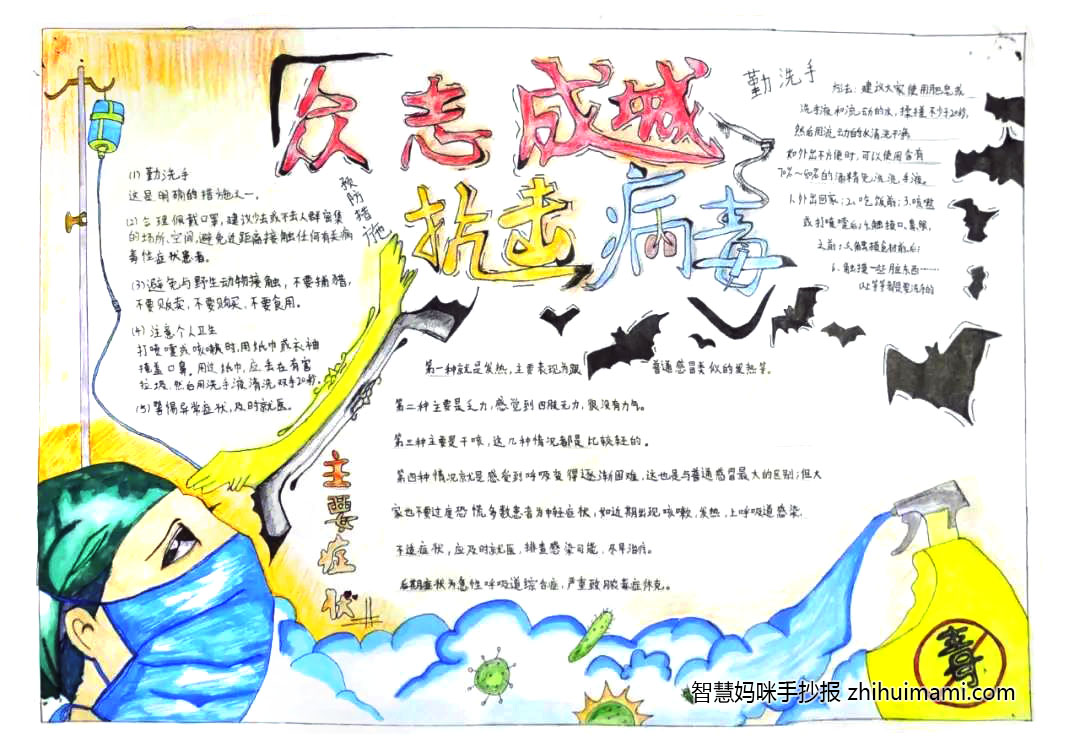 众志成城
抗击病毒
预防措施
(1) 勤洗手
这是明确的措施之一。
(2) 合理佩戴口罩,建议少去或不去人群密集
的场所、空间,避免近距离接触任何有关病
毒性症状患者。
(3) 避免与野生动物接触,不要捕猎,
不要贩卖,不要购买,不要食用。
(4) 注意个人卫生
打喷嚏或咳嗽时,用纸巾或衣袖
掩盖口鼻。用过纸巾,应丢在有害
垃圾,然后用洗手液清洗双手20秒。
(5) 警惕异常症状,及时就医。
勤洗手
方法:建议大家使用肥皂或
洗手液和流动的水,揉搓不少于20秒,
然后用流动的水清洗干净
如外出不方便时,可以使用含有
70%~60%的酒精免洗洗手液。
1.外出回家;2.吃饭前;3.咳嗽
或打喷嚏后;4.触摸口、鼻、眼,
之前;5.触摸食材前后;
6.触摸一些脏东西……
以上等等都是要洗手的
主要症状
第一种就是发热,主要表现为跟 普通感冒类似的发热等。
第二种主要是乏力,感觉到四肢无力,很没有力气。
第三种主要是干咳,这几种情况都是比较轻的。
第四种情况就是感觉到呼吸变得逐渐困难,这也是与普通感冒最大的区别;但大
家也不要过度恐慌,多数患者为中轻症状,如近期出现咳嗽,发热,上呼吸道感染,
不适症状,应及时就医,排查感染可能,尽早治疗。
后期症状为急性呼吸道综合症,严重致脓毒症休克。
毒
智慧妈咪手抄报 zhihuimami.com